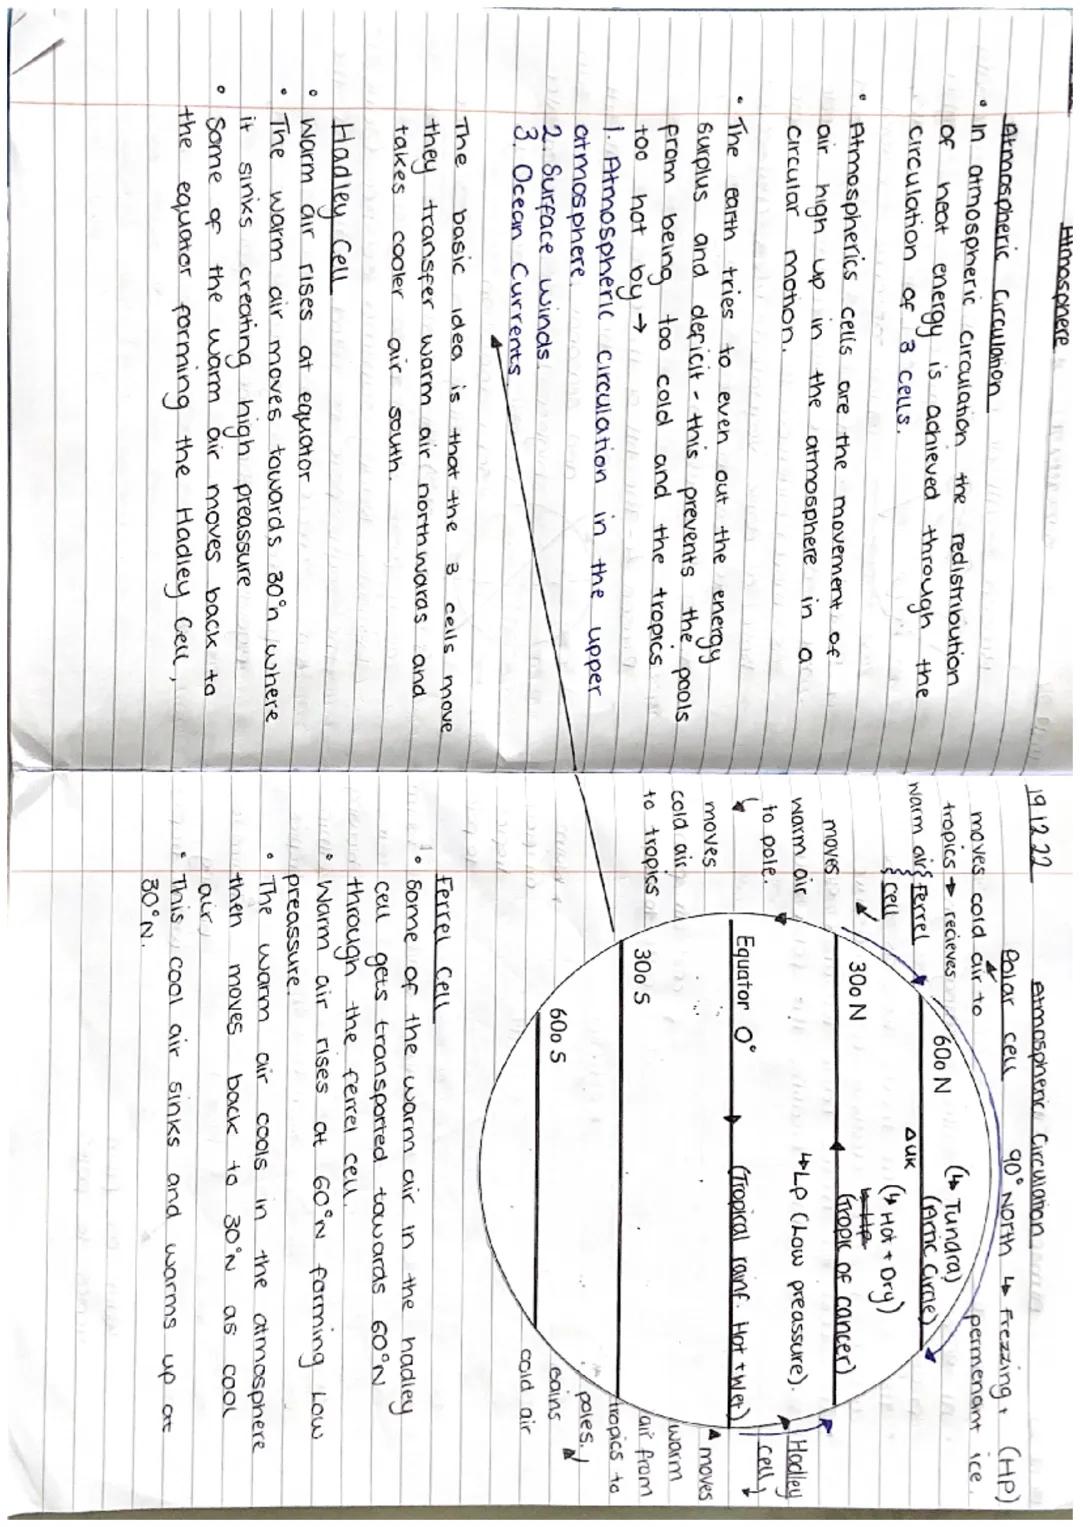 Atmosphere
Atmospheric Circulation
• In atmospheric circulation the redistribution
of heat energy is achieved through the
circulation of 3 cells.
• Atmospherics cells are the movement of
air high up in the atmosphere in a
circular motion.
• The earth tries to even out the energy
surplus and deficit - this prevents the pools
from being too cold and the tropics
too hot by →
1. Atmospheric circulation in the upper
atmosphere.
2. Surface winds.
3. Ocean Currents
The basic idea is that the 3 cells move
they transfer warm air northwards and
takes cooler air south.
Hadley Cell
• Warm air rises at equator
• The warm air moves towards 30°n where
it sinks creating high preassure
• Some of the warm air moves back to
the equator forming the Hadley Cell,
19.12.22
Atmospheric Circulation
Polar cell
90° North ↳ Frezzing + (HP)
permenant ice.
moves cold air to
tropics → recieves
warm air
Ferrel
cell
moves
warm air
to pole.
moves
cold air
to tropics
60o N
(↳ Tundra)
(Artic Circle)
△UK
(↳ Hot + Dry)
30o N
(Tropic of cancer)
↳ LP (Low preassure).
Equator 0°
(Tropical rainf. Hot + Wet)
30o S
60o S
Hadley
cell
moves
warm
air from
tropics to
poles.
gains
cold air
Ferrel Cell
• Some of the warm air in the hadley
cell gets transported towards 60°N
through the ferrel cell.
• Warm air rises at 60°N forming Low
preassure.
• The warm air cools in the atmosphere
then moves back to 30°N as cool
air,
• This cool air sinks and warms up at
30°N.